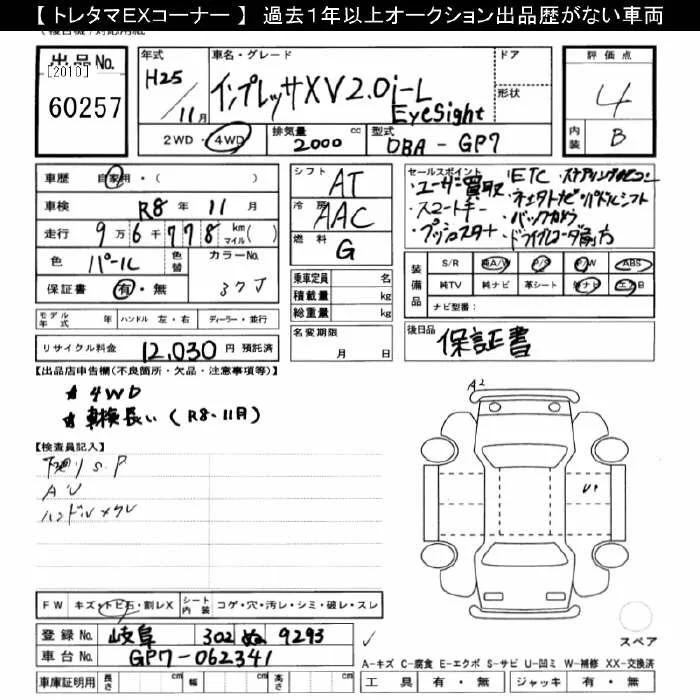 【トレタマEXコーナー】 過去1年以上オークション出品歴がない車両
出品No.
[2010]
60257
年式
H25
11月
車名・グレード
インプレッサXV2.0i-L
EyeSight
ドア
形状
2WD・4WD
排気量 2000 cc
型式 DBA-GP7
評価点
4
内装 B
車歴 自家用・( )
車検 R8年 11月
走行 9万6千778 km マイル( )
色 パール
色替
カラーNo. 37J
保証書 有・無
モデル年式 年
ハンドル 左・右
ディーラー・並行
リサイクル料金 12,030円 預託済
シフト AT
冷房 AAC
燃料 G
乗車定員 名
積載量 kg
総重量 kg
名変期限
月 日
セールスポイント
・ユーザー買取
・ETC
・スマートキー
・パドルシフト
・プッシュスタート
・バックカメラ
・ドライブレコーダー前方
装備品
S/R 純A/W P/S P/W ABS
純TV 純ナビ 革シート 社ナビ エアB
ナビ型番:
後日品
保証書
【出品店申告欄(不良箇所・欠品・注意事項等)】
★ 4WD
★ 車検長い (R8-11月)
【検査員記入】
下廻りS.P
AU
ハンドルスレ
A2
U1
FW キズ・トビ石・割レX
シート内装 コゲ・穴・汚レ・シミ・破レ・スレ
登録No. 岐阜 302 ぬ 9293
車台No. GP7-062341
車庫証明用 長さ cm 幅 cm 高さ cm
スペア
A-キズ C-腐食 E-エクボ S-サビ U-凹ミ W-補修 XX-交換済
工具 有・無 ジャッキ 有・無